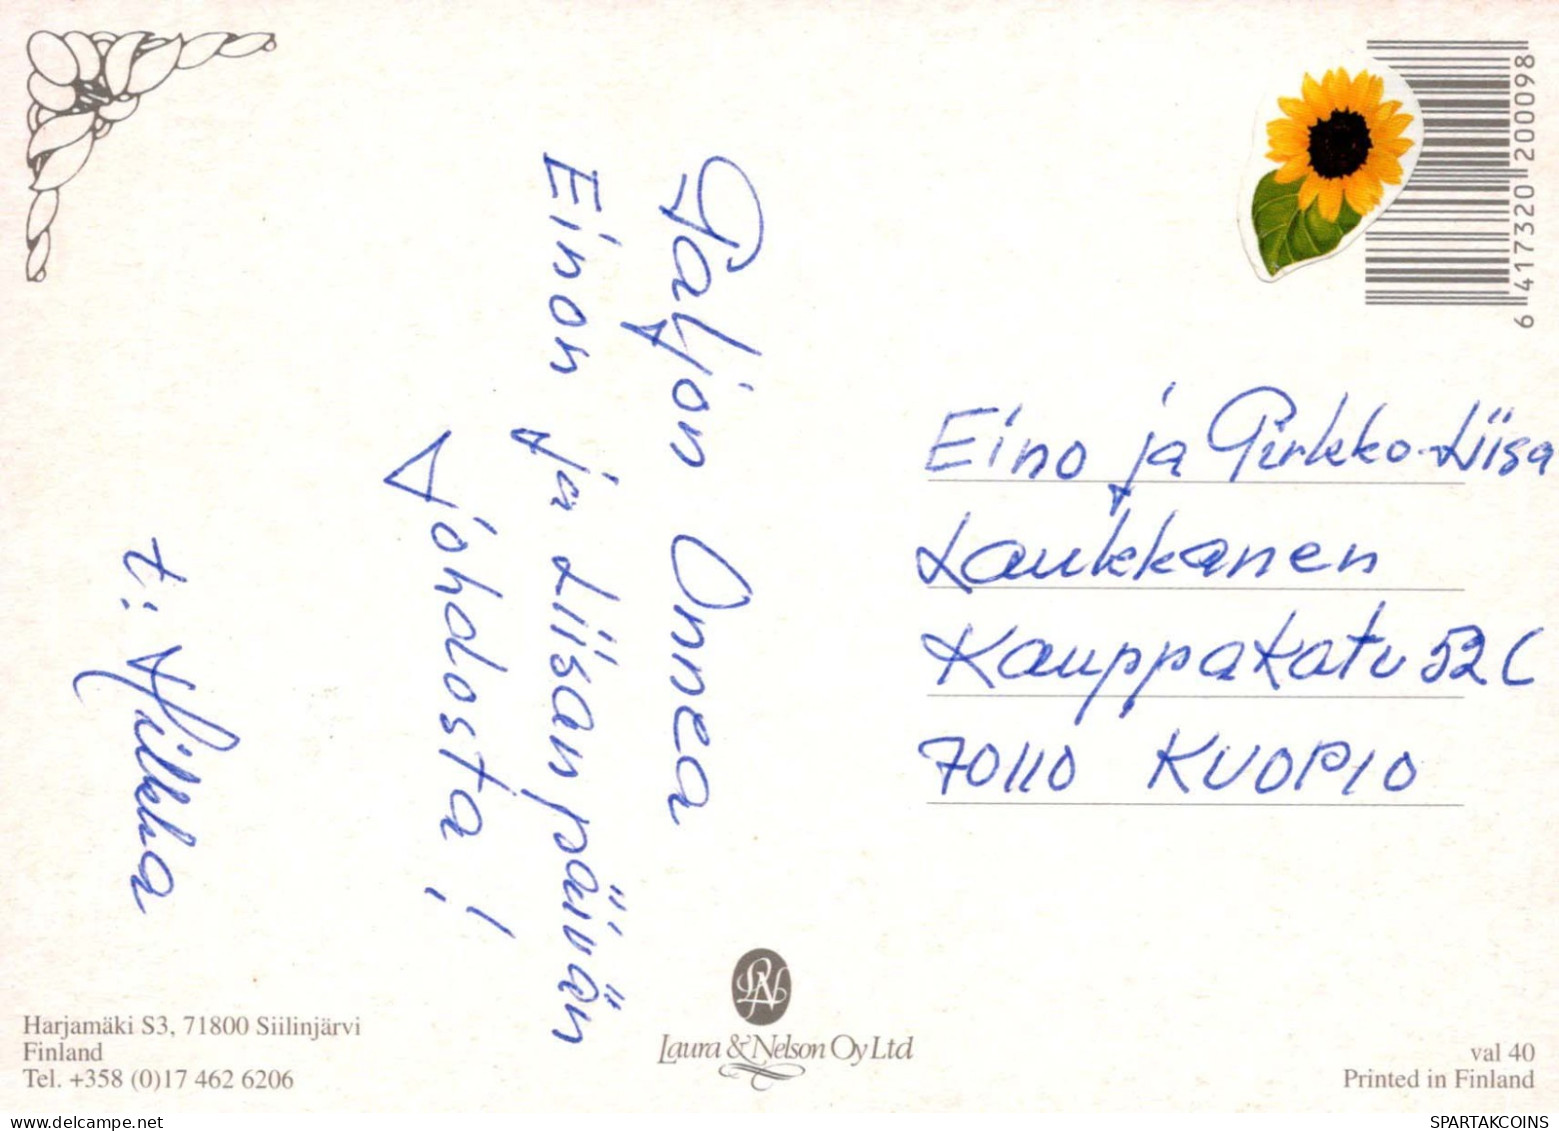 Paljon Onnea
Einon ja Liisan päivän
johdosta!
t: Hilkka
6 417320 200098
Eino ja Pirkko-Liisa
Laukkanen
Kauppakatu 52 C
70110 KUOPIO
Harjamäki S3, 71800 Siilinjärvi
Finland
Tel. +358 (0)17 462 6206
LN
Laura & Nelson Oy Ltd
val 40
Printed in Finland
delcampe.net
SPARTAKCOINS